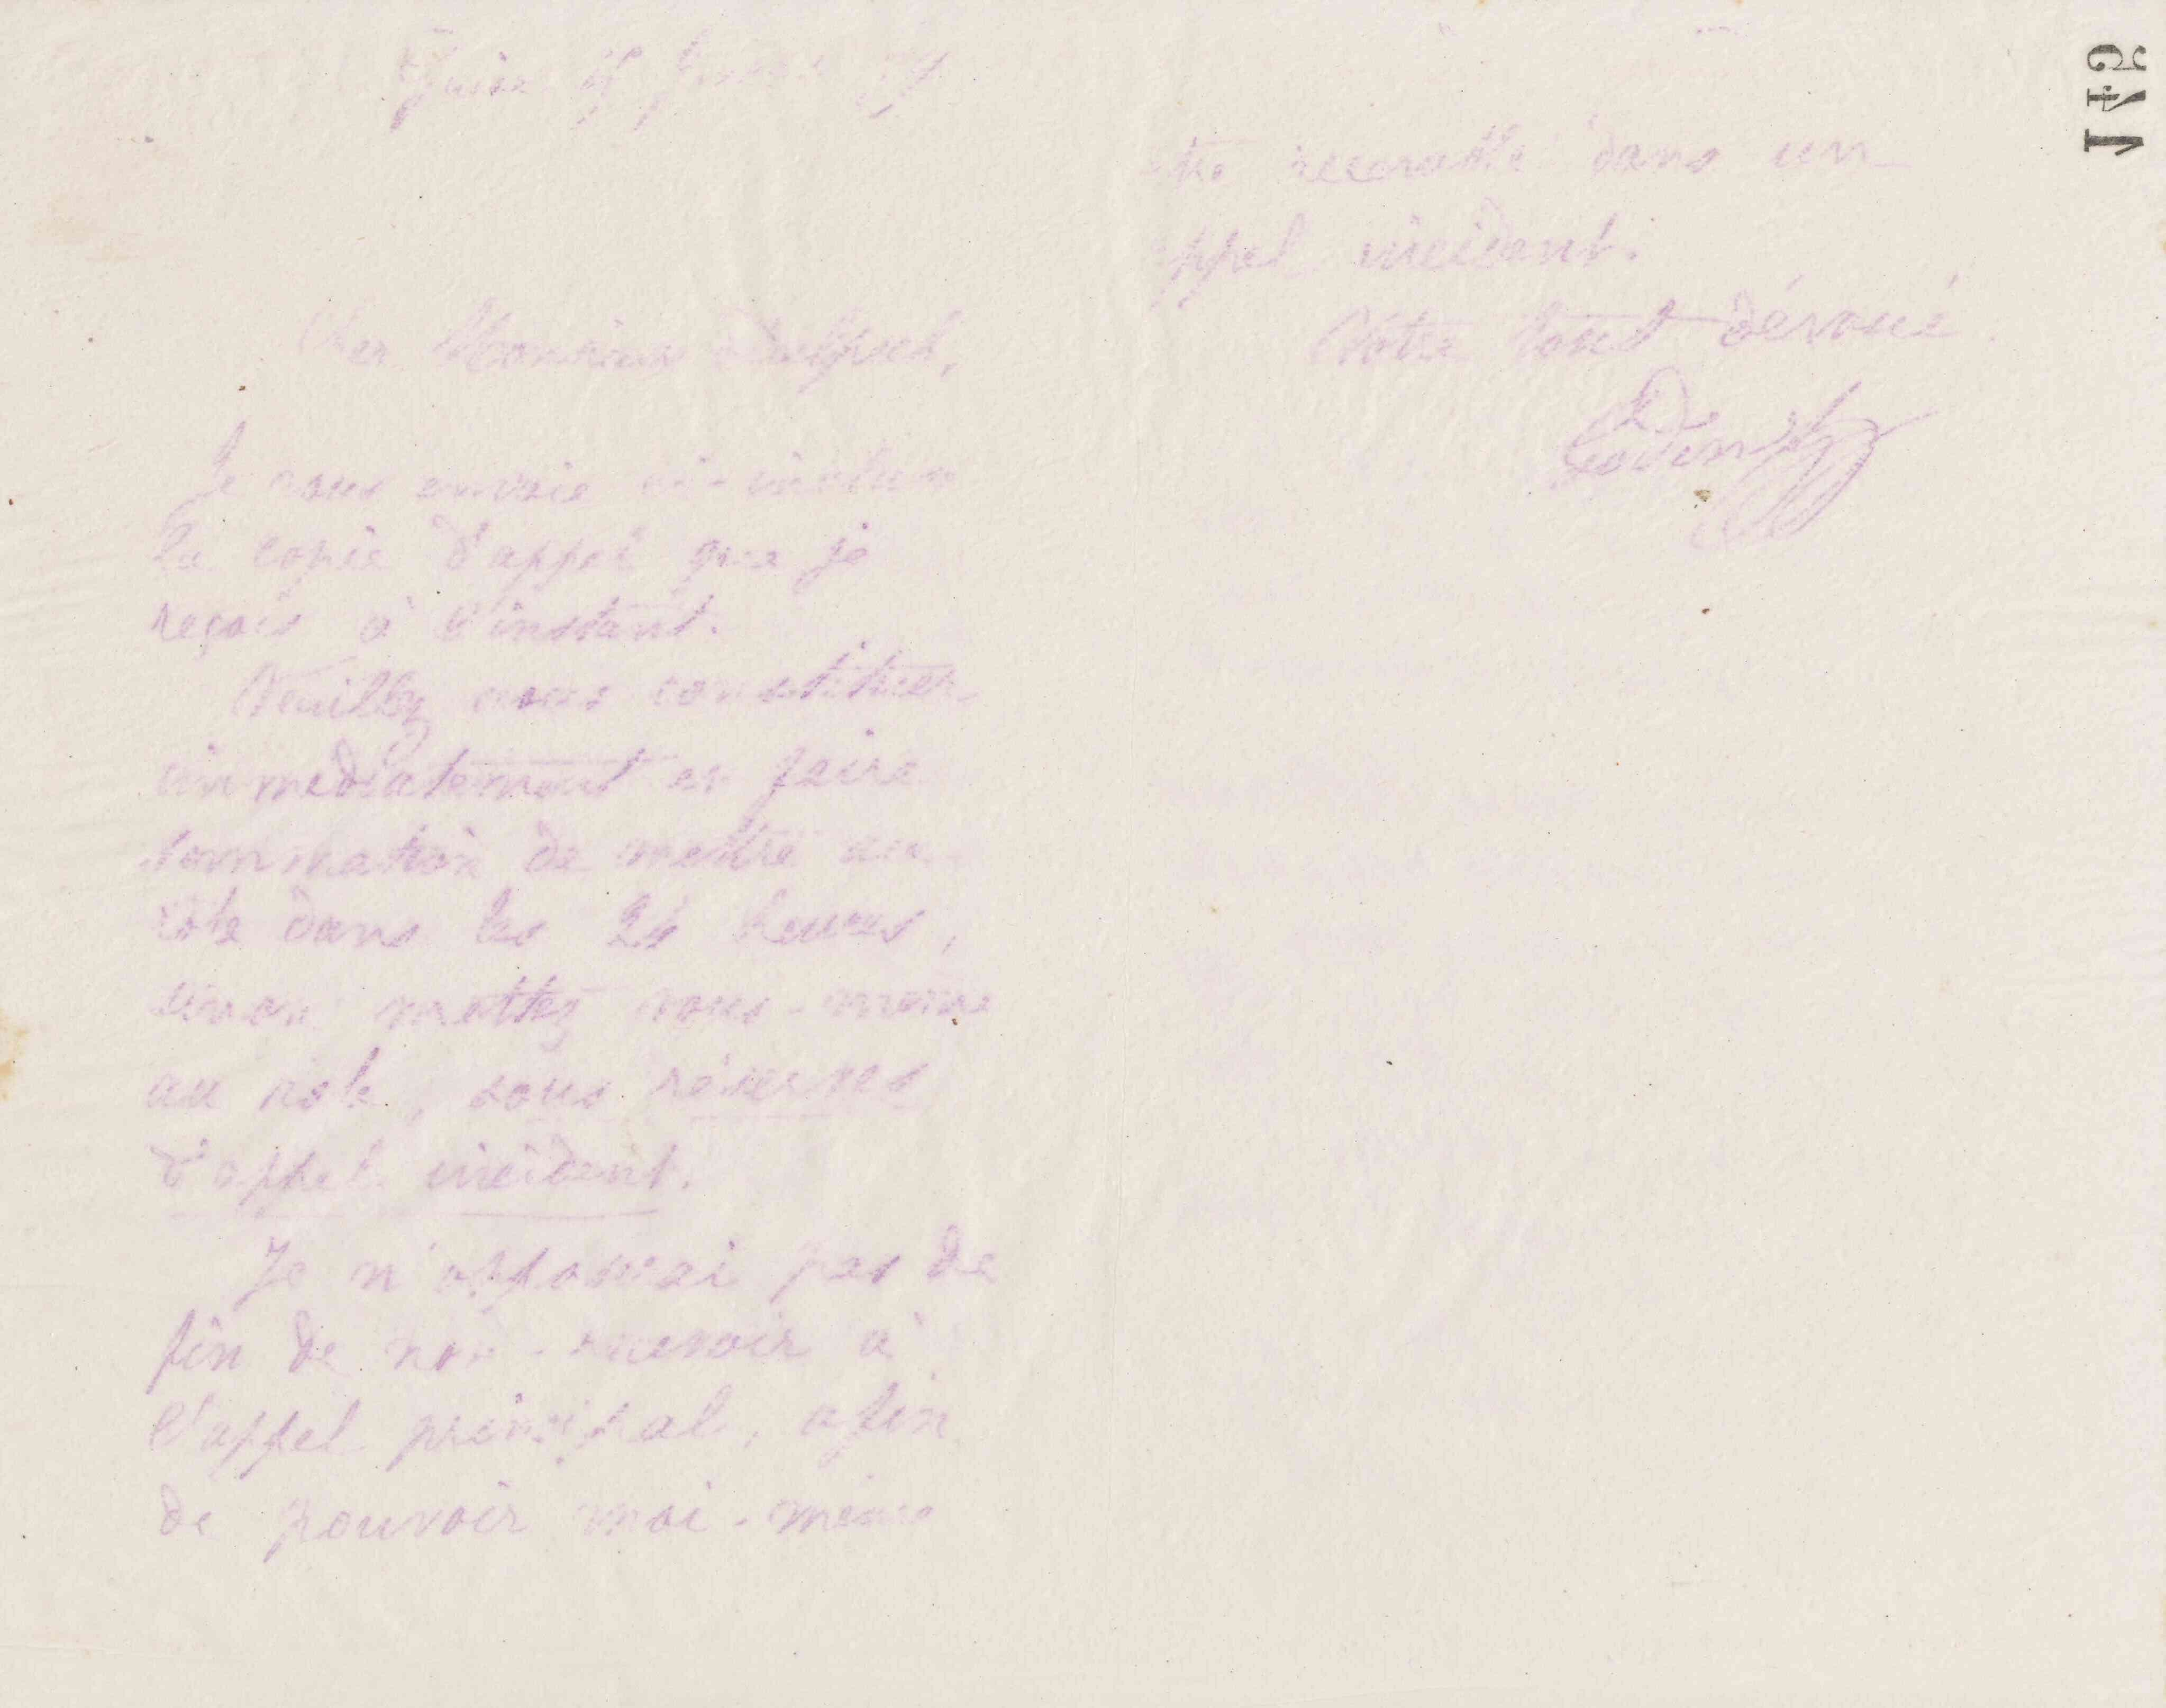 Guise
Cher Monsieur Delpech,
Je vous envoie ci-inclus
la copie d'appel que je
reçois à l'instant.
Veuillez vous constituer
immediatement et faire
sommation de mettre au
rôle dans les 24 heures,
sinon mettez vous-même
au role, sous réserves
d'appel incident.
Je n'opposerai pas de
fin de non-recevoir à
l'appel principal, afin
de pouvoir moi-même
être recevable dans un
appel incident.
Votre tout dévoué
Godin
541